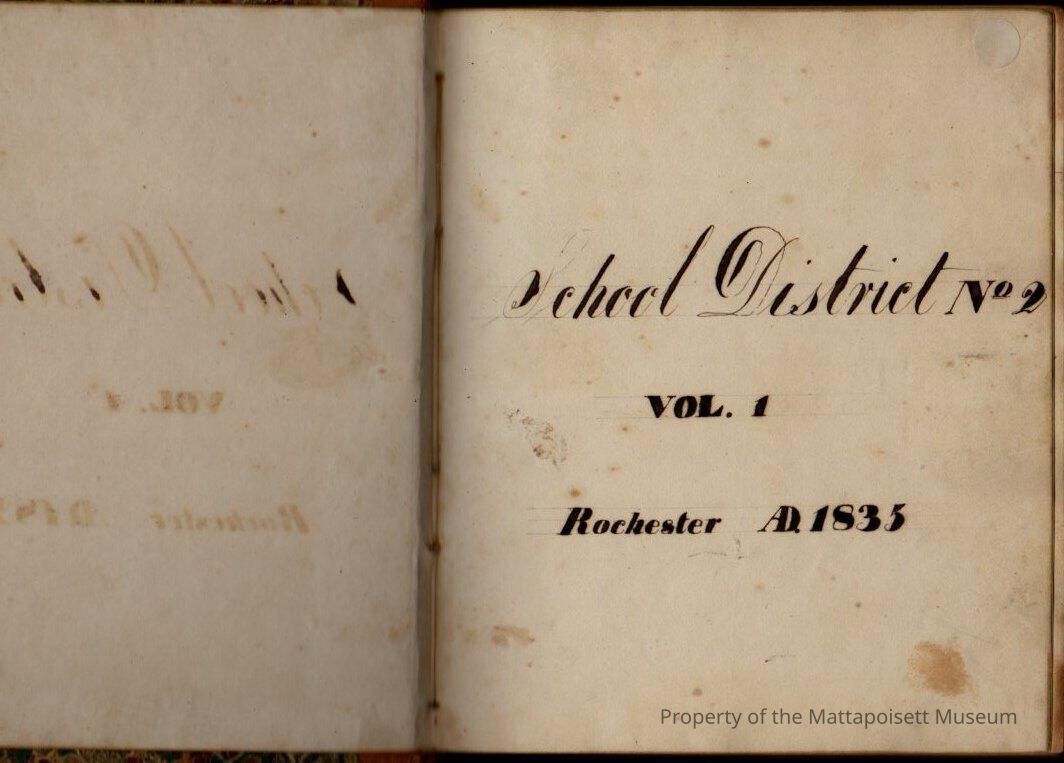 School District Nº 2
VOL. 1
Rochester AD. 1835
Property of the Mattapoisett Museum